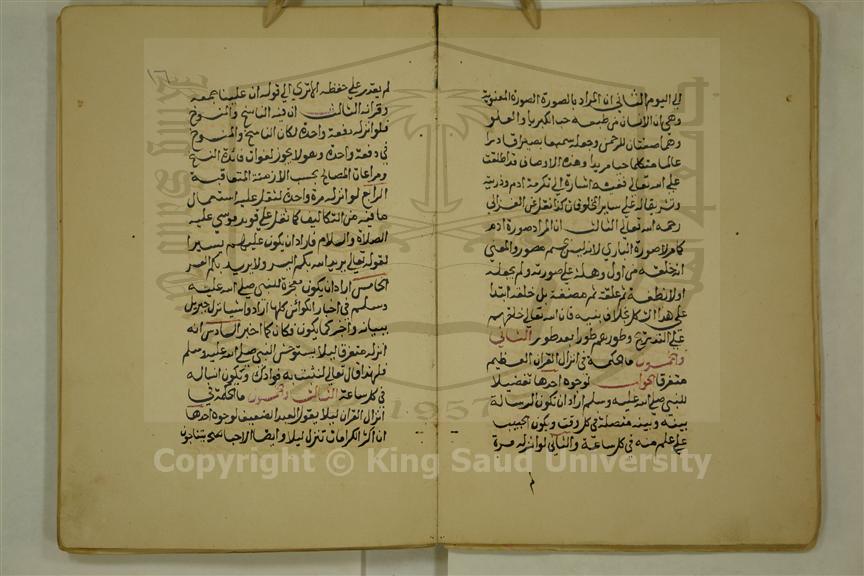 الى اليوم الثاني ان المراد بالصورة الصورة المعنوية
وهي ان الانسان في طبعه حب الكبريا والعلو
وهما صفتان للرحمن وجعله سميعا بصيرا قادرا
عالما متكلما حيا مريدا وهذه الاوصاف قد اطلقت
على الله تعالى ففيه اشارة الى تكرمة ادم وذريته
على ساير المخلوقات كذا نقل عن الغزالي
رحمه الله تعالى الثالث ان المراد صورة ادم
والمعنى
انه خلقه من اول وهلة على صورته ولم يجعله
اولا نطفة ثم علقة ثم مضغة بل خلقه ابتدا
على هذا الشكل بخلاف بنيه فان الله تعالى خلقهم
على التدريج وطورهم طورا بعد طور الثاني
والخمسون ما الحكمة في انزال القران العظيم
متفرقا الجواب لوجوه احدها تفضيلا
للنبي صلى الله عليه وسلم اراد ان تكون الرسالة
بينه وبينه متصلة في كل وقت ويكون الحبيب
على علم منه في كل ساعة والثاني لو انزله مرة
لم
١٦
لم يقدر على حفظه الا ترى الى قوله ان علينا جمعه
وقرانه الثالث ان فيه الناسخ والمنسوخ
فلو انزله دفعة واحدة لكان الناسخ والمنسوخ
في دفعة واحدة وهو لا يجوز لفوات فائدة النسخ
ومراعاة المصالح بحسب الازمنة المتعاقبة
الرابع لو انزله مرة واحدة لثقل عليه استعمال
ما فيه من التكاليف كما ثقل على قوم موسى عليه
الصلاة والسلام فاراد ان يكون عليهم يسيرا
لقوله تعالى يريد الله بكم اليسر ولا يريد بكم العسر
الخامس اراد ان يكون معجزة للنبي صلى الله عليه
وسلم في اخبار الكوائن كلما اراد شيا نزل جبريل
ببيانه واخبر كما يكون وكان كما اخبر السادس انه
انزله متفرقا ليلا يستوحش النبي صلى الله عليه وسلم
فلهذا قال تعالى لنثبت به فوادك ويكون
في كل ساعة الثالث والخمسون ما الحكمة في
انزال القران ليلا يقول العبد الضعيف لوجوه احدها
ان اكثر الكرامات تنزل ليلا وايضا
Copyright © King Saud University
1957